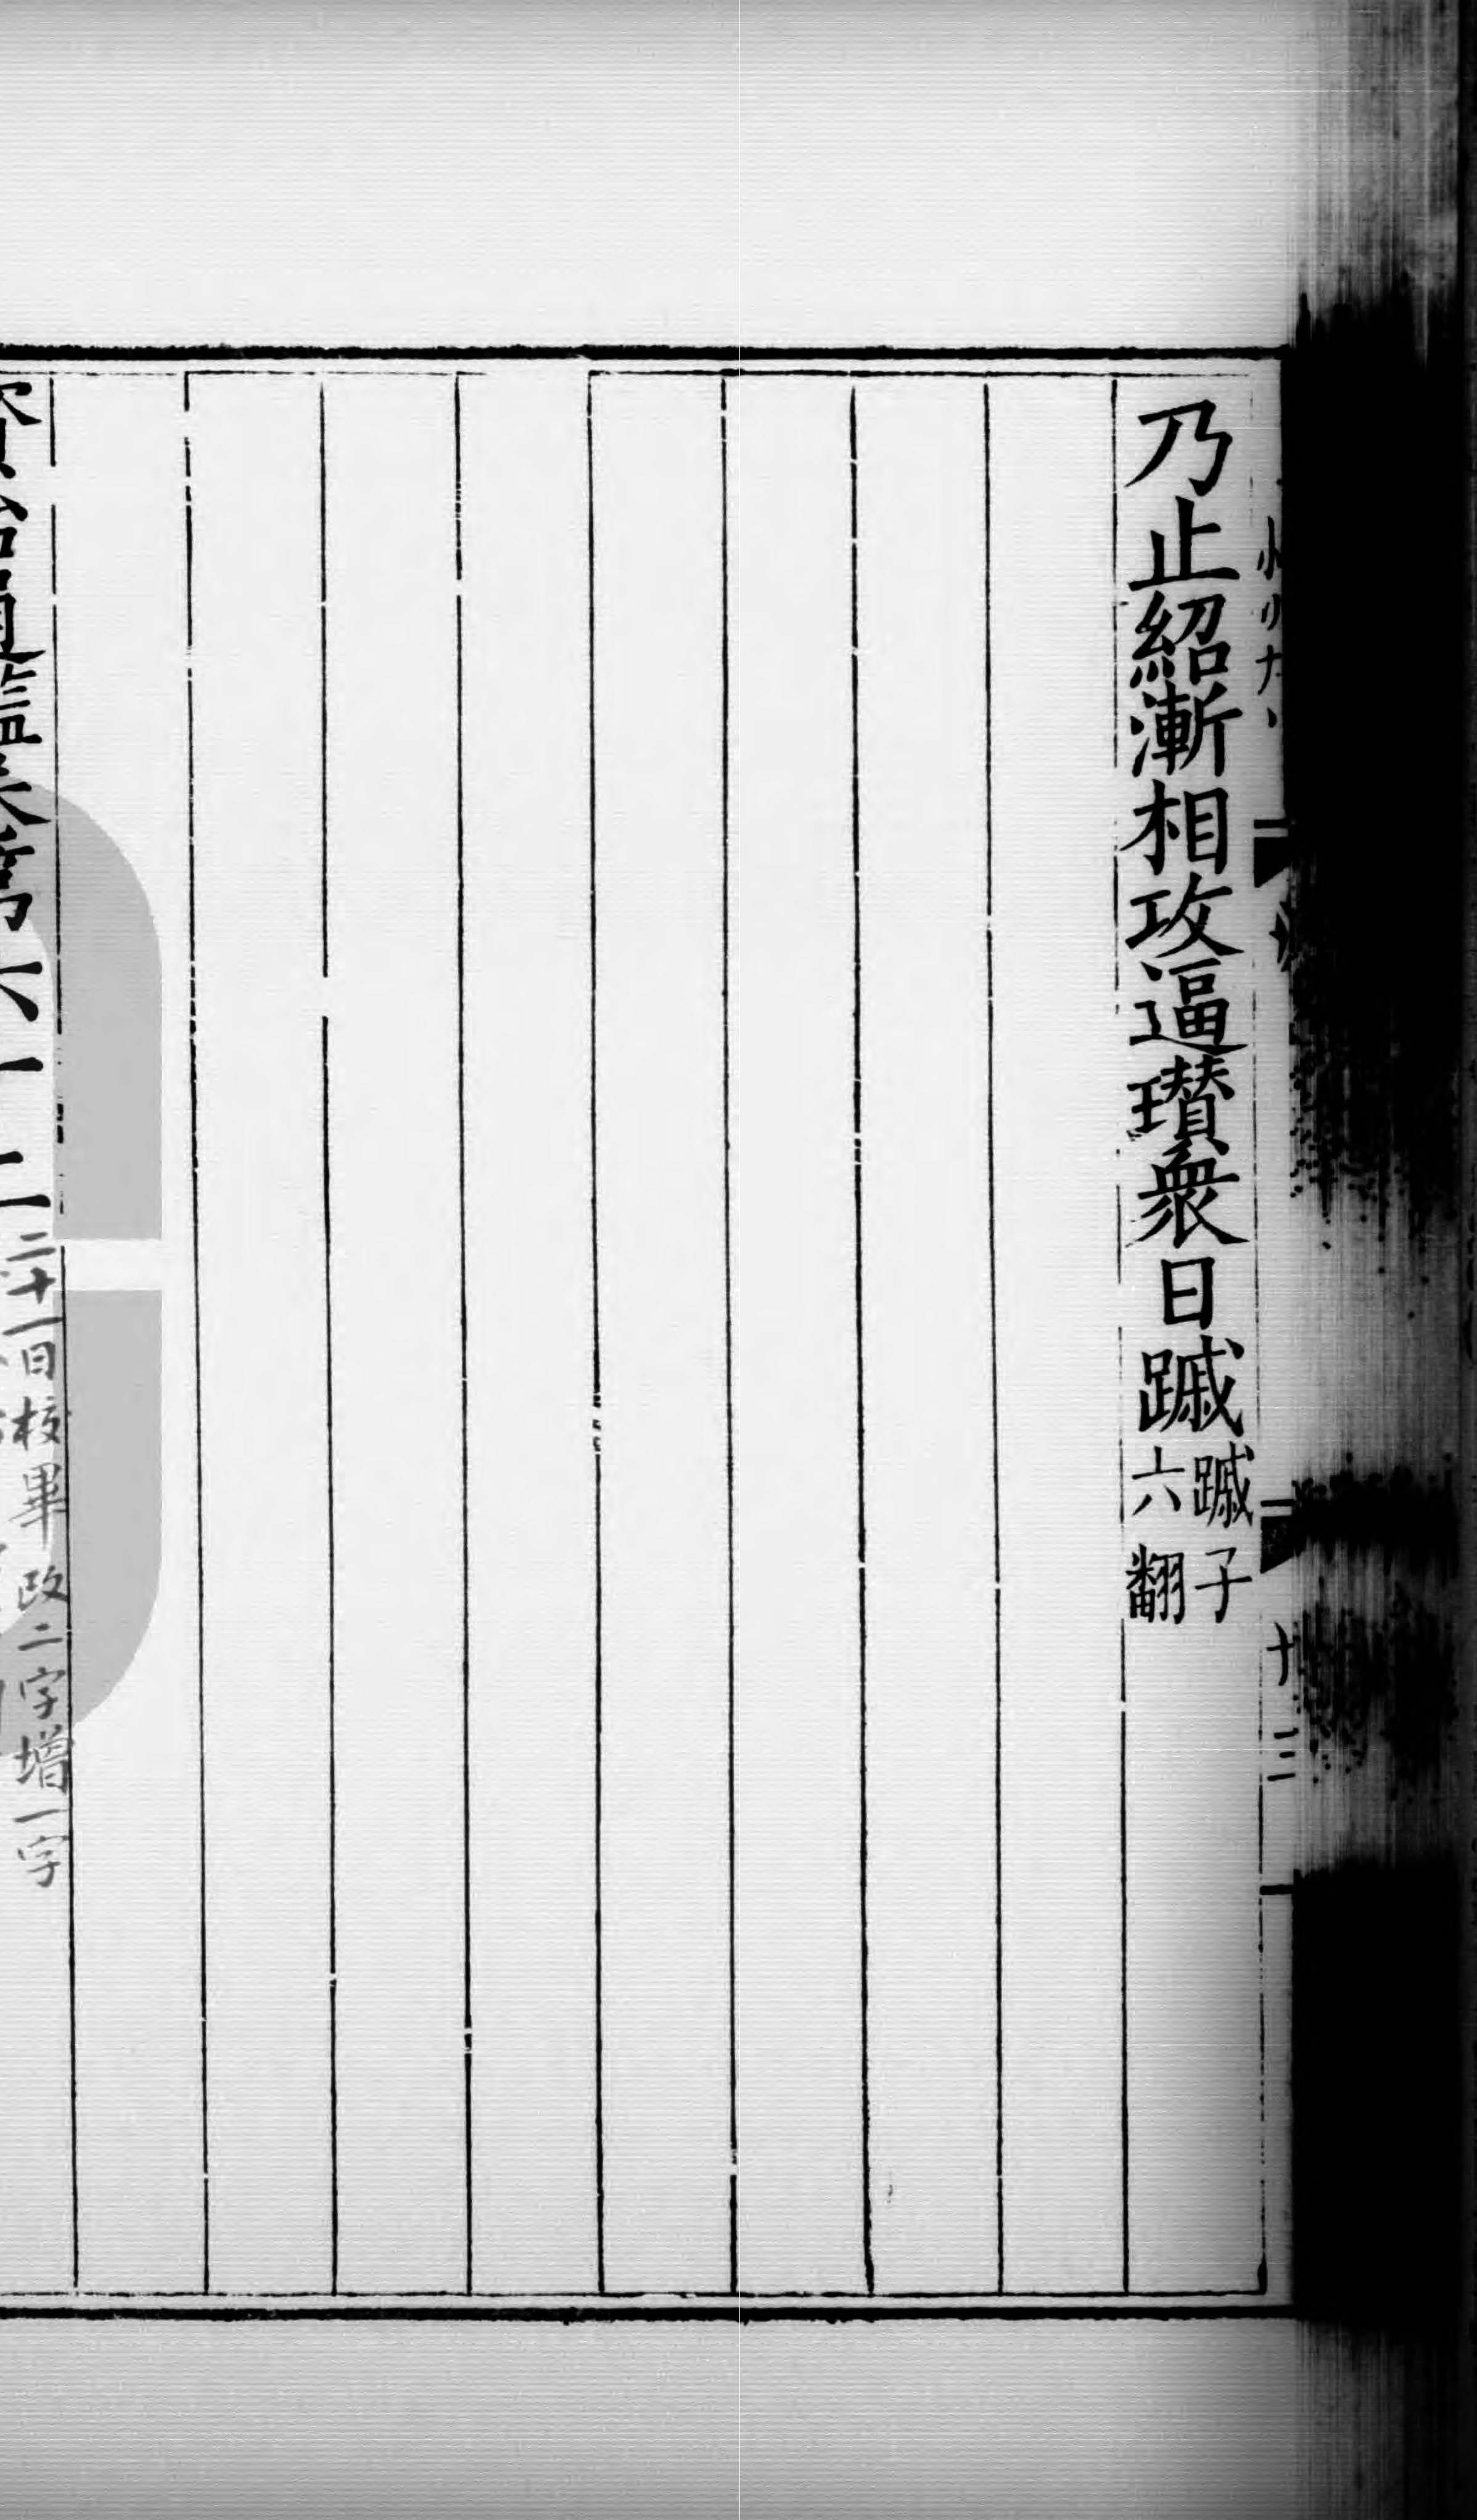 乃止紹漸相攻逼瓚衆日蹙蹙子
六翻
資治通鑑卷第六十二
二十一日校畢改二字增一字